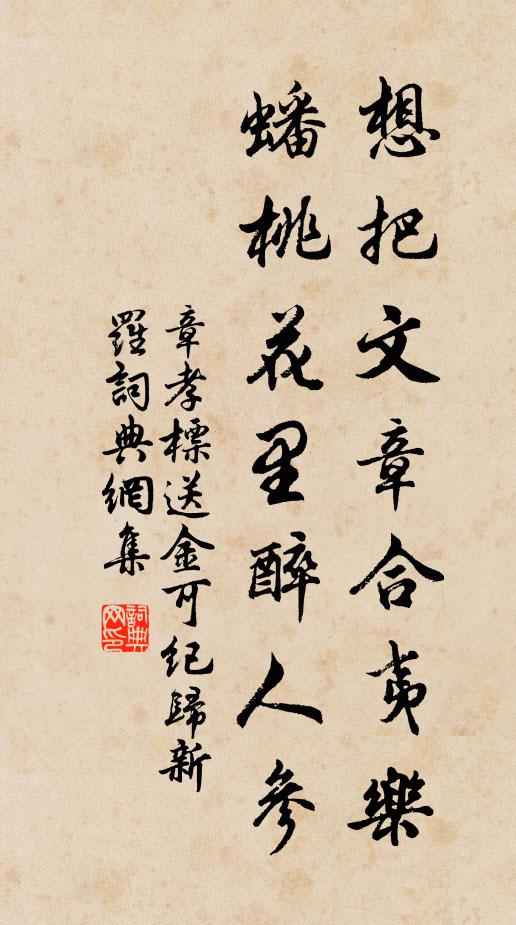 想把文章合夷樂
蟠桃花里醉人參
章孝標送金可紀歸新
羅詞典網集
詞典网印